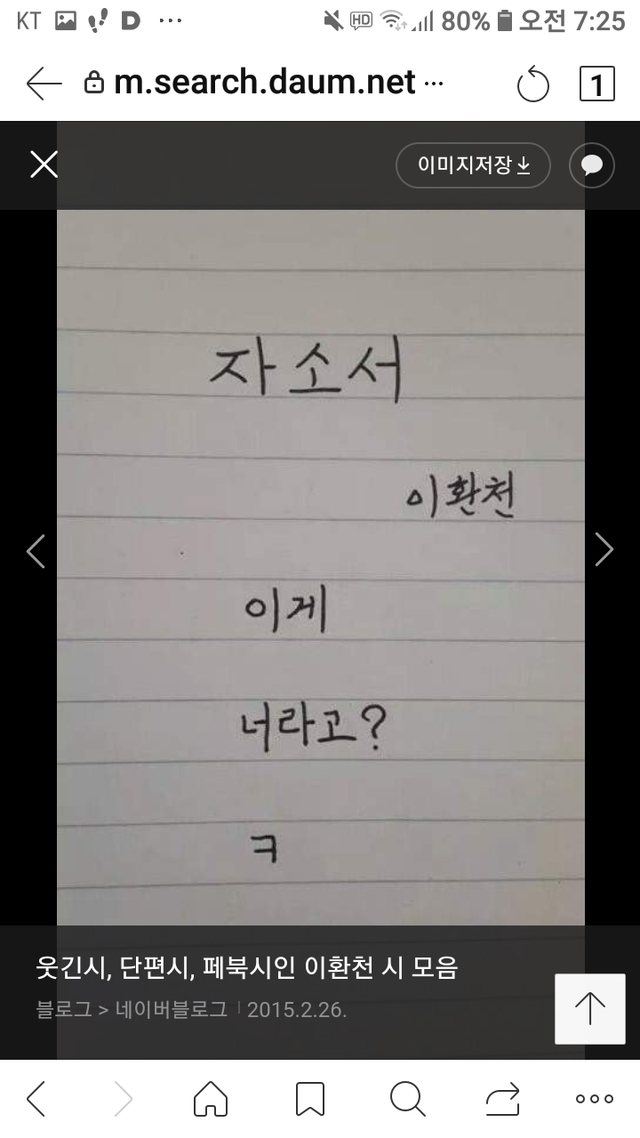 KT D ... HD 80% 오전 7:25
m.search.daum.net ... 1
이미지저장
자소서
이환천
이게
너라고?
ㅋ
웃긴시, 단편시, 페북시인 이환천 시 모음
블로그 > 네이버블로그 | 2015.2.26.